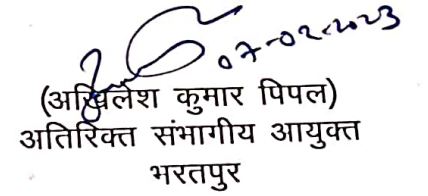 07-02-2023
(अखिलेश कुमार पिपल)
अतिरिक्त संभागीय आयुक्त
भरतपुर